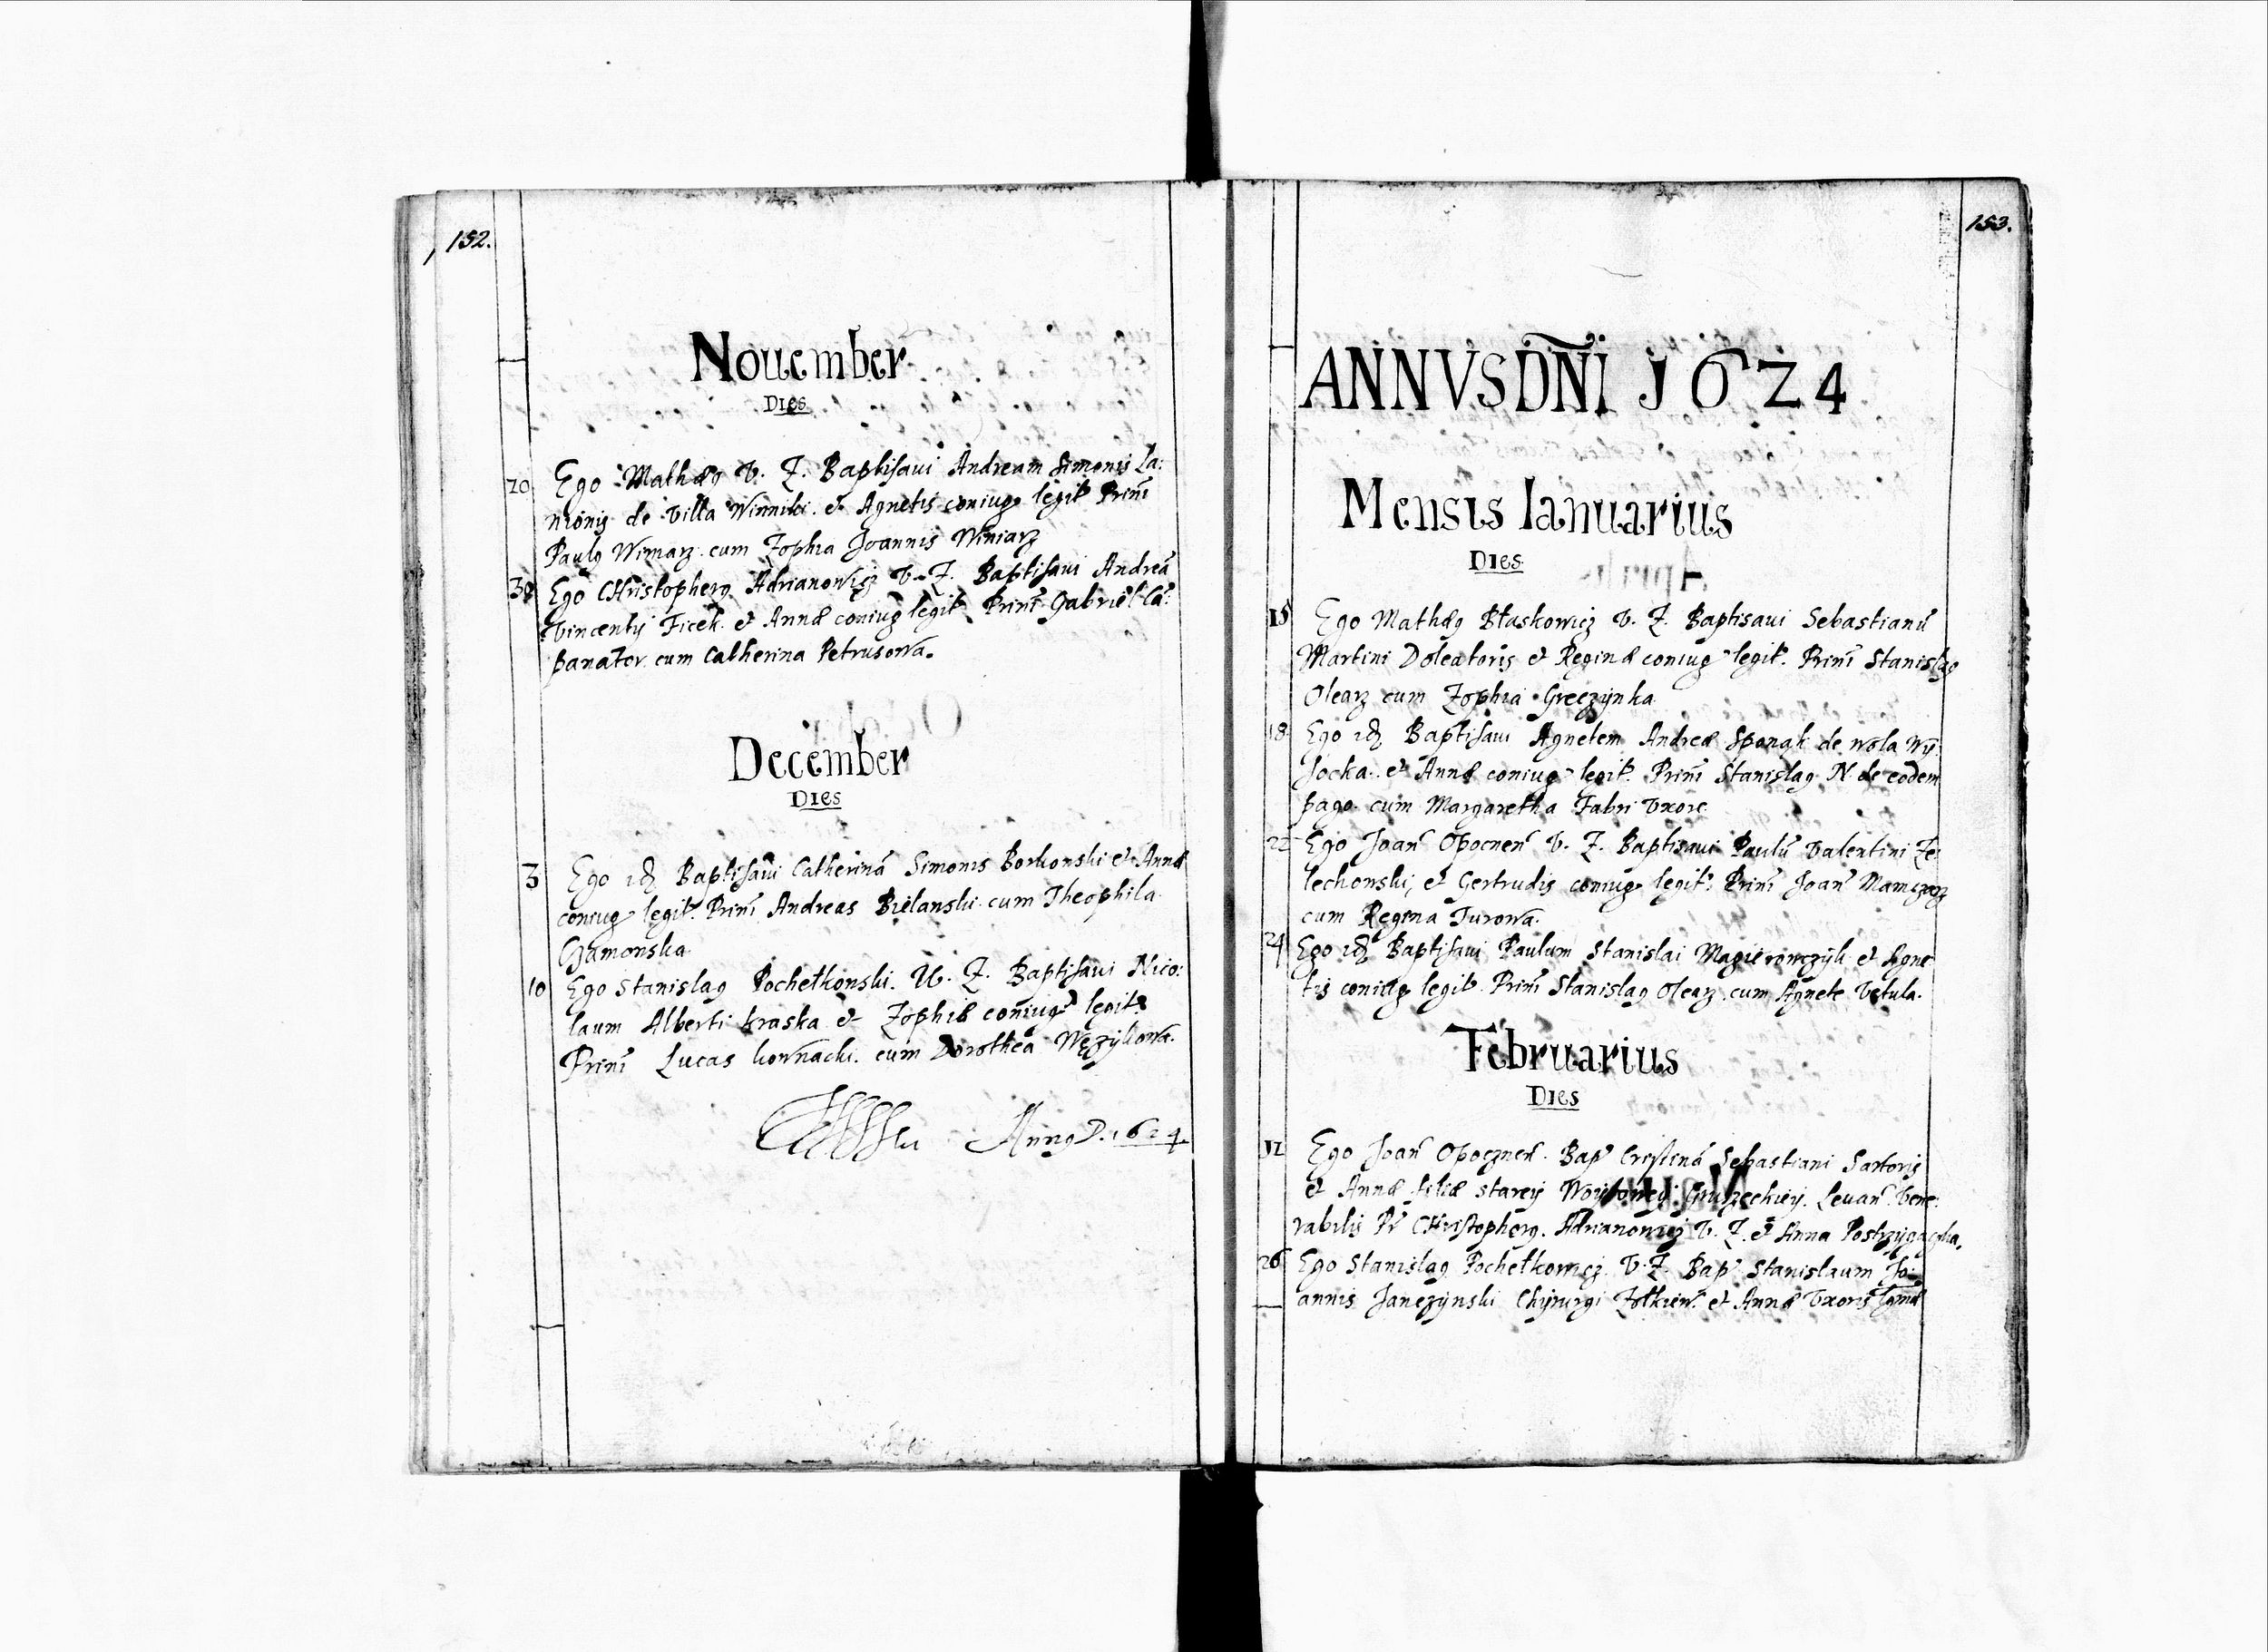 152.
November
Dies
20 Ego Mathæus V. Z. Baptisaui Andream Simonis La:
nionis de Villa Winniki. et Agnetis coniug legit Prim̃
Paulus Winiarz cum Zophia Joannis Winiarz
30 Ego Christopherus Adrianowicz V. Z. Baptisaui Andreã
Vincentij Ficek. et Annæ coniug legit Prim̃ Gabriel Cã:
panator cum Catherina Petrusowa.
December
Dies
3 Ego idẽ Baptisaui Catherinã Simonis Borkonski et Annæ
coniug legit. Prim̃ Andreas Bielanski cum Theophila
Gamonska
10 Ego Stanislaus Pochetkonski. V. Z. Baptisaui Nico:
laum Alberti Kraska et Zophiæ coniug legit.
Prim̃ Lucas Kownacki. cum Dorothea Wężykowa.
Anno D. 1624.
153.
ANNVS DÑI 1624
Mensis Ianuarius
Dies
15 Ego Mathæus Błaskowicz V. Z. Baptisaui Sebastianũ
Martini Doleatoris et Reginæ coniug legit. Prim̃ Stanislaus
Olearz cum Zophia Greczynka
18 Ego idẽ Baptisaui Agnetem Andreæ Sponak de wola Wy:
socka. et Annæ coniug legit. Prim̃ Stanislaus N. de eodem
pago cum Margaretha Fabri Vxore
22 Ego Joan Opocnen V. Z. Baptisaui Paulũ Valentini Ze:
lechonski, et Gertrudis coniug legit. Prim̃ Joan Mamczarz
cum Regina Turowa.
24 Ego idẽ Baptisaui Paulum Stanislai Magierowczyk et Agne
tis coniug legit. Prim̃ Stanislaus Olearz cum Agnete Vetula.
Februarius
Dies
12 Ego Joan Opoeznen. Bap Cristinã Sebastiani Sartoris
et Annæ filiæ starey Woytowey Gruszeckiey. Leuan Vene:
rabilis Pr Christopherus. Adrianowicz V. Z. et Anna Postrzygaczka.
26 Ego Stanislaus Pochetkowicz V. Z. Bap Stanislaum Jo:
annis Janczynski Chyrurgi Zołkiew. et Annæ Vxoris